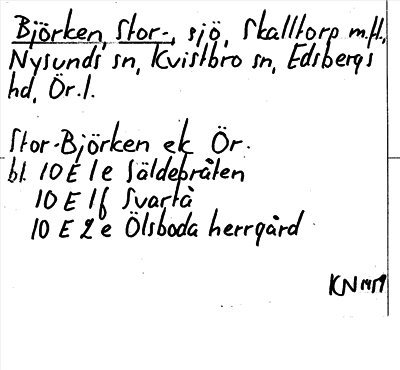 Björken, Stor-, sjö, Skalltorp m.fl.,
Nysunds sn, Kvistbro sn, Edsbergs
hd, Ör. l.
Stor-Björken ek Ör.
bl. 10 E 1e Säldebråten
10 E 1f Svartå
10 E 2e Ölsboda herrgård
KN